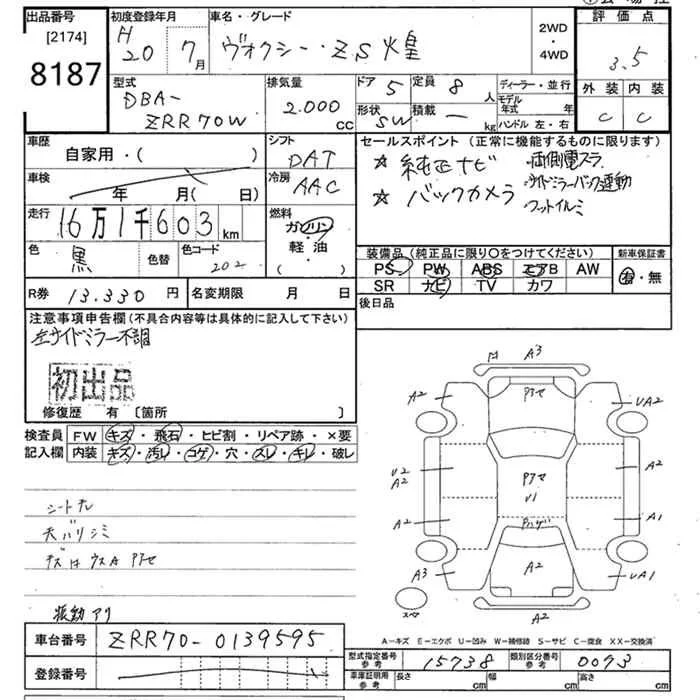 出品番号
[2174]
8187
初度登録年月
H
20 7月
車名・グレード
ヴォクシー・ZS 煌
2WD
・
4WD
評価点
3.5
外装 内装
C C
型式
DBA-
ZRR70W
排気量
2.000
CC
ドア 5
定員 8人
形状 SW
積載 — kg
ディーラー・並行
モデル年式 年
ハンドル 左・右
車歴
自家用・( )
車検
年 月( 日)
シフト
DAT
冷房
AAC
セールスポイント (正常に機能するものに限ります)
☆ 純正ナビ ・両側電スラ
☆ バックカメラ ・サイドミラーバック連動
・フットイルミ
走行
16万1千603km
燃料
ガソリン
・
軽・油
( )
色
黒
色替
色コード
202
装備品 (純正品に限り○をつけてください)
新車保証書
PS PW ABS エアB AW
SR ナビ TV カワ
有・無
R券 13.330円
名変期限 月 日
後日品
注意事項申告欄 (不具合内容等は具体的に記入して下さい)
左サイドミラー不調
初出品
修復歴 有 〔箇所 〕
検査員
記入欄
FW キズ・飛石・ヒビ割・リペア跡・×要
内装 キズ・汚レ・コゲ・穴・スレ・キレ・破レ
シートスレ
天バリシミ
振動アリ
A3
A2
アセ
UA2
U2
A2
アセ
U1
A2
A2
A1
A3
A2
UA1
スペア
A2
A－キズ E－エクボ U－凹み W－補修跡 S－サビ C－腐食 XX－交換済
車台番号
ZRR70-0139595
登録番号
型式指定番号
参考
15738
類別区分番号
参考
0093
車庫証明用
参考
長さ cm
幅 cm
高さ cm